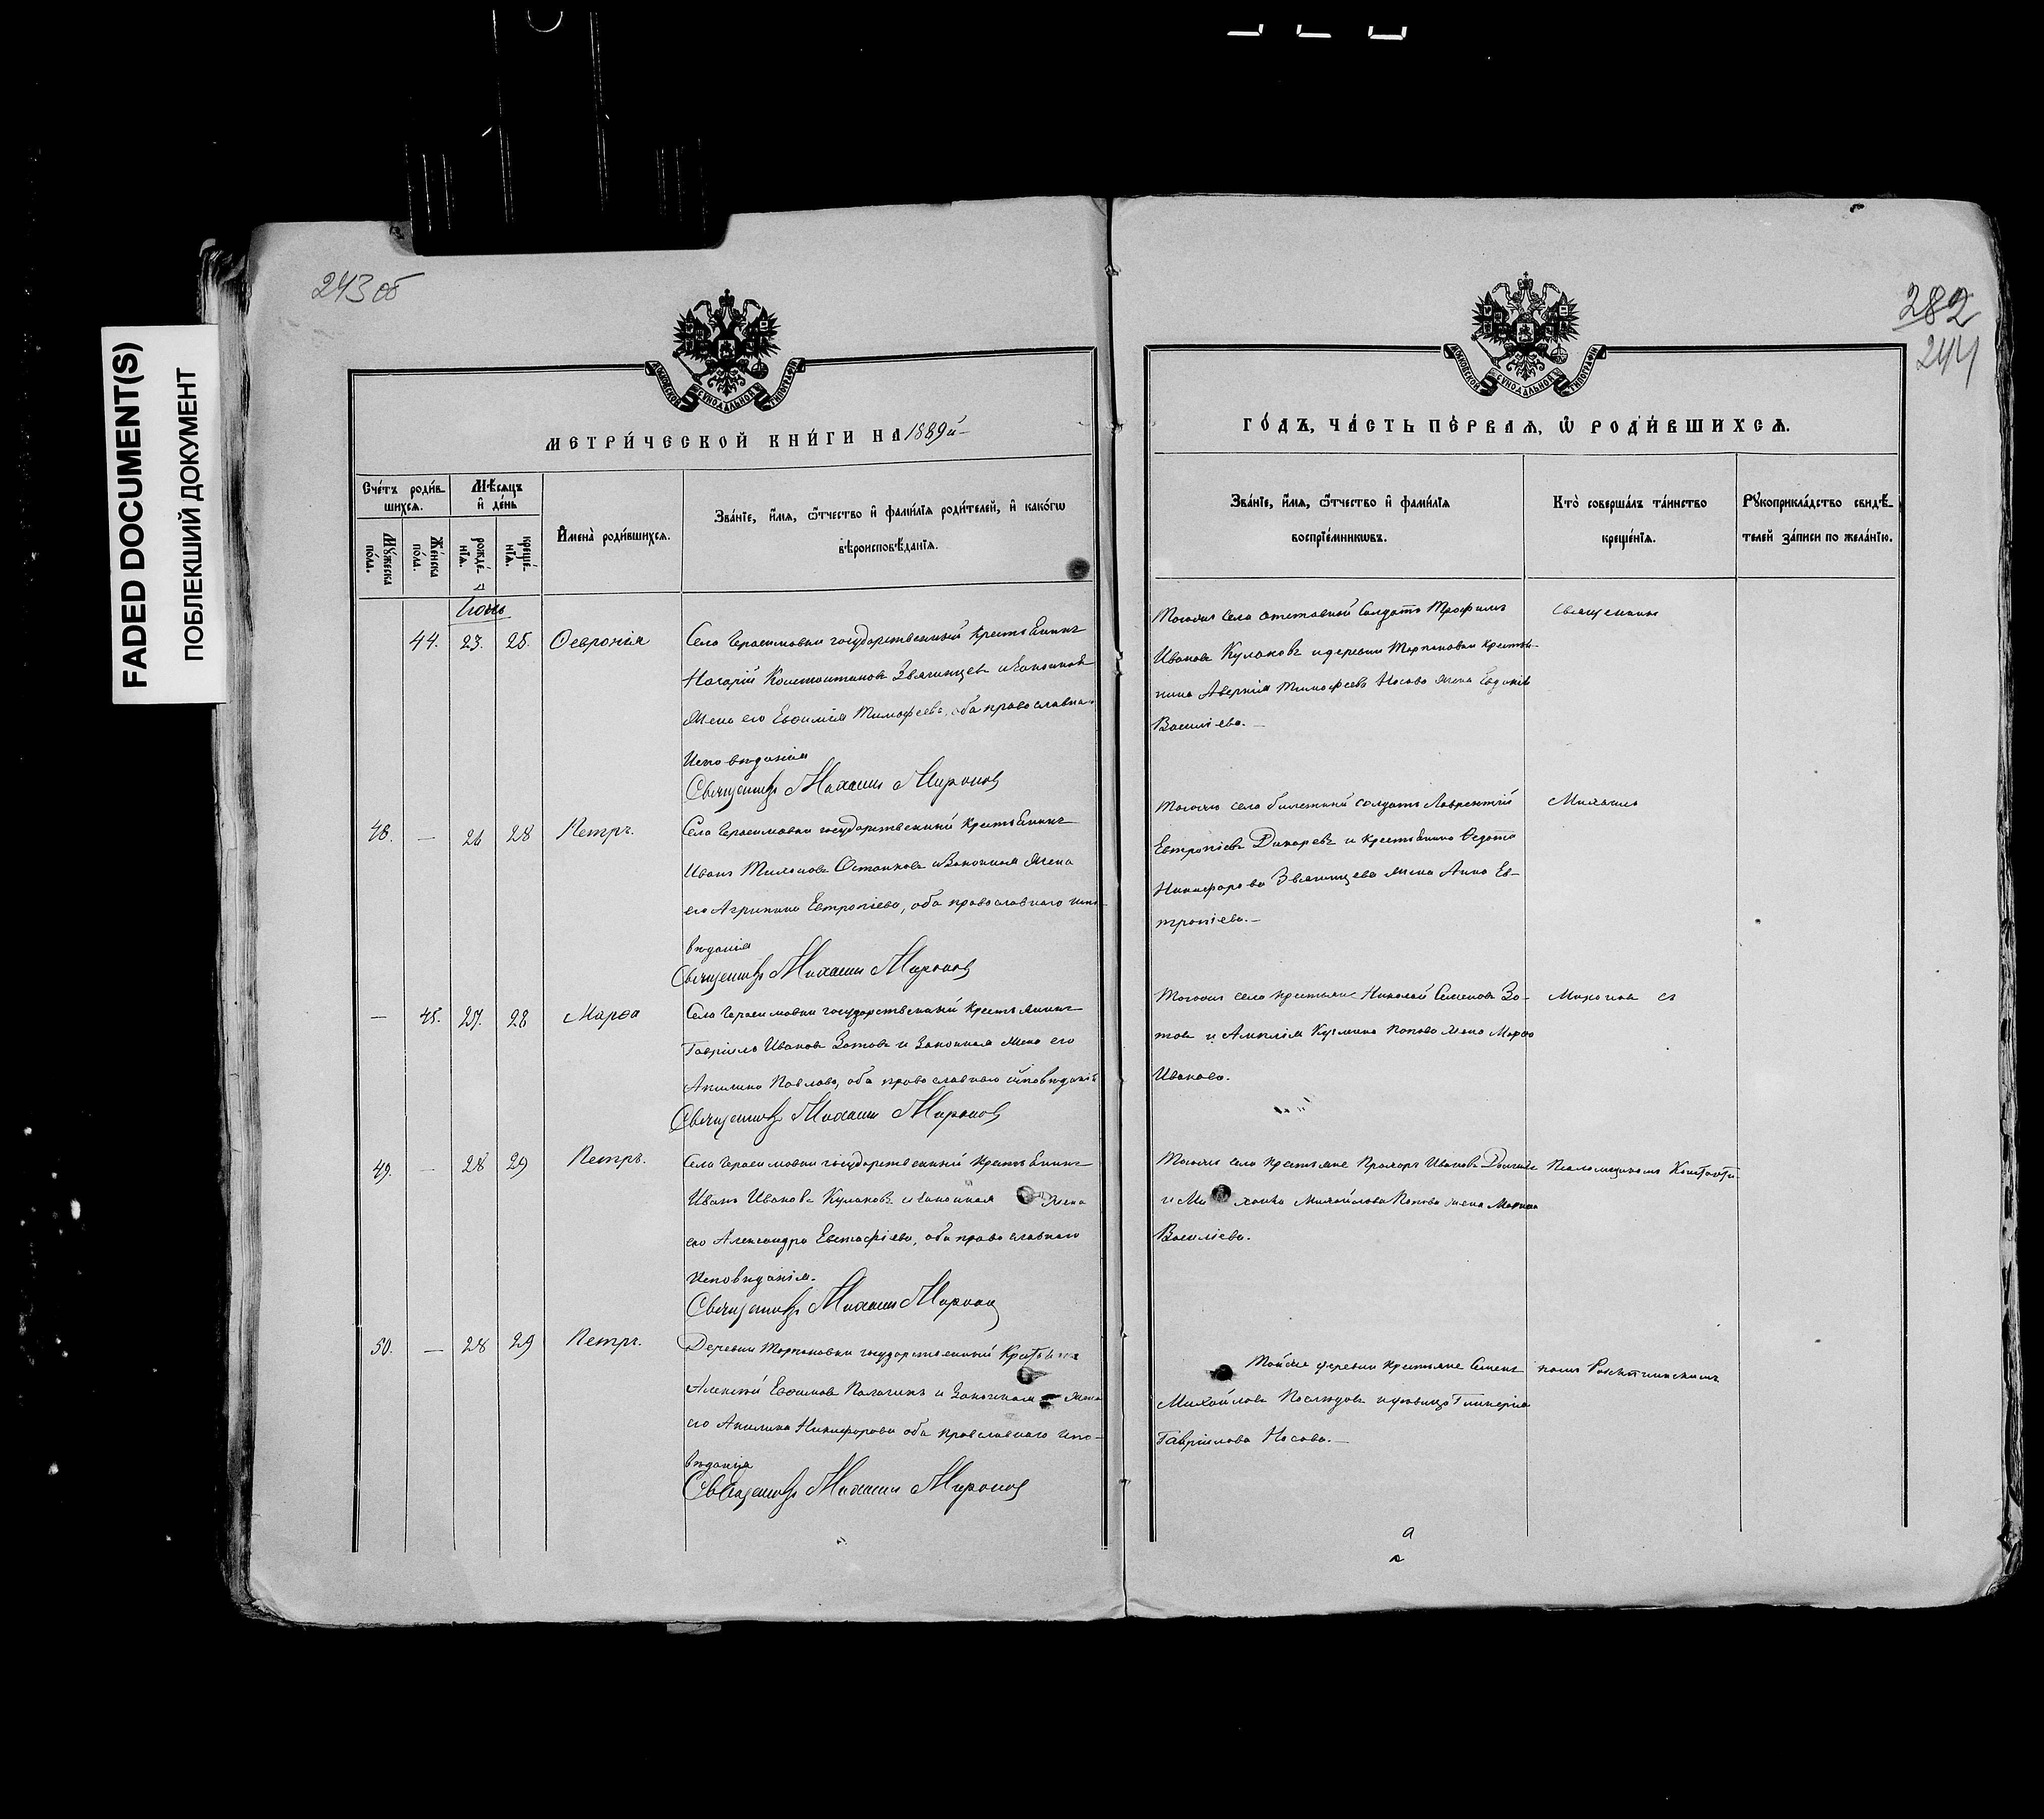 FADED DOCUMENT(S)
ПОБЛЕКШИЙ ДОКУМЕНТ
243 об
МОСКОВСКОЙ СѴНОДАЛЬНОЙ ТИПОГРАФІИ
МЕТРИ́ЧЕСКОЙ КНИ́ГИ НА 1889й
Сче́тъ роди́вшихсѧ.
Мꙋ́жеска по́ла.
Же́нска по́ла.
Мѣ́сѧцъ и҆ де́нь
рожде́нїѧ.
креще́нїѧ.
И҆мена̀ роди́вшихсѧ.
Зва́нїе, и҆́мѧ, ѻ҆́тчество и҆ фами́лїѧ роди́телей, и҆ како́гѡ
вѣроисповѣ́данїѧ.
Іюнь
44. 23. 25. Ѳевронія
Села Герасимовки государственный крестьянинъ
Константиновъ Звягинцевъ и законная
жена его Евѳимія Тимофеева, оба православна
исповѣданія
Священникъ Михаилъ Мироновъ
48. — 26 28 Петръ.
Села Герасимовки государственный крестьянинъ
Иванъ Остаиковъ и законная жена
его Агрипина Евтропіева, оба православнаго испо
вѣданія
Священникъ Михаилъ Мироновъ
— 45. 27. 28 Марѳа
Села Герасимовки государственный крестьянинъ
Гавріилъ Ивановъ Зотовъ и законная жена его
Акилина Павлова, оба православнаго исповѣданія
Священникъ Михаилъ Мироновъ
49. — 28 29 Петръ.
Села Герасимовки государственный крестьянинъ
Иванъ Ивановъ Кулаковъ и законная жена
его Александра Евстафіева, оба православнаго
исповѣданія.
Священникъ Михаилъ Мироновъ
50. — 28 29 Петръ.
Деревни государственный крестьянинъ
Алексѣй Евѳимовъ и законная жена
его Акилина Никифорова оба православнаго испо-
вѣданія
Священникъ Михаилъ Мироновъ
282
244
МОСКОВСКОЙ СѴНОДАЛЬНОЙ ТИПОГРАФІИ
ГО́ДЪ, ЧА́СТЬ ПЕ́РВАѦ, Ѡ҆ РОДИ́ВШИХСѦ.
Зва́нїе, и҆́мѧ, ѻ҆́тчество и҆ фами́лїѧ
воспрїе́мникѡвъ.
Кто̀ соверша́лъ та́инство
креще́нїѧ.
Рꙋкоприкла́дство свидѣ́-
телей за́писи по жела́нїю.
Тогоже села отставной солдатъ Трофимъ
Ивановъ Кулаковъ и деревни крестья-
нина Аверкія Тимофеева Носова жена Евдокія
Василіева. —
Священникъ
Тогоже села билетный солдатъ Лаврентій
Евтропіевъ Дикаревъ и крестьянина Ѳедота
Никифорова Звягинцева жена Анна Ев-
тропіева. —
Михаилъ
Тогоже села крестьяне Николай Семеновъ Зо-
товъ и Кузмина Попова жена Марѳа
Иванова.
Мироновъ съ
Тогоже села крестьяне Прохоръ Ивановъ
Михайлова Попова жена
Василіева.
Псаломщикомъ Константи-
Тойже деревни крестьяне Семенъ
Михайловъ и дѣвица Гликерія
Гавріилова Носова. —
номъ